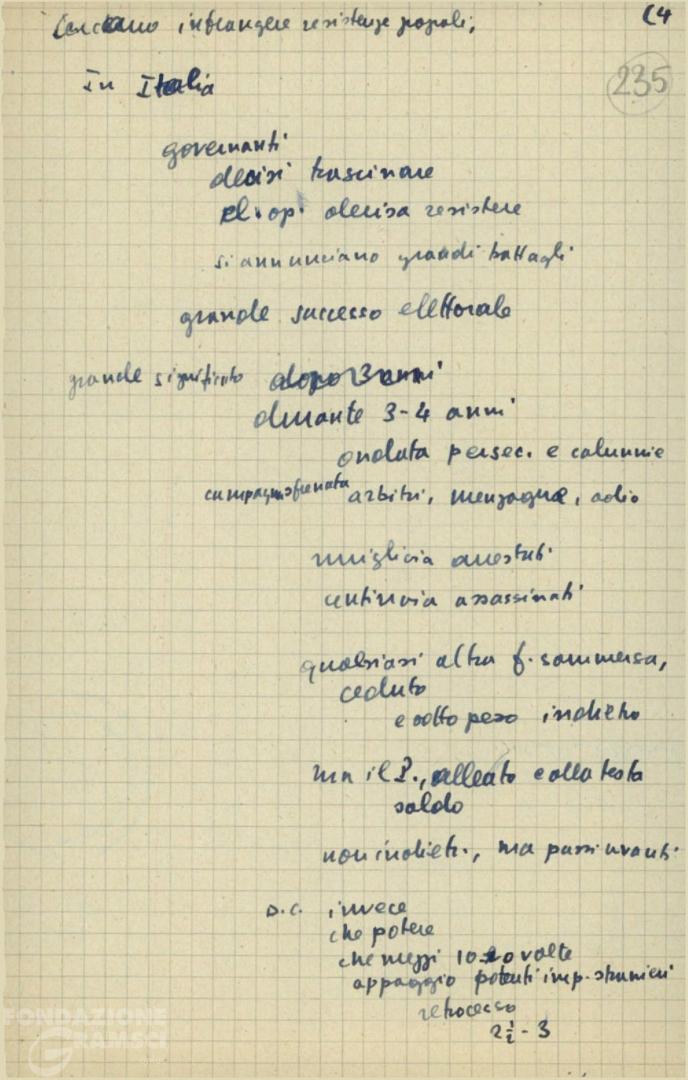 Cercano infrangere resistenze popoli;
(4
235
In Italia
governanti
decisi trascinare
cl. op. decisa resistere
si annunciano grandi battagli
grande successo elettorale
grande significato dopo 3 anni
durante 3-4 anni
ondata persec. e calunnie
campagna sfrenata arbitri, menzogne, odio
migliaia arrestati
centinaia assassinati
qualsiasi altra f. sommersa,
ceduto
e sotto peso indietro
ma il P., alleato e alla testa
saldo
non indietr., ma passi avanti
D.C. invece
che potere
che mezzi 10 20 volte
appoggio potenti imp. stranieri
retrocesso
2½ - 3
FONDAZIONE
GRAMSCI